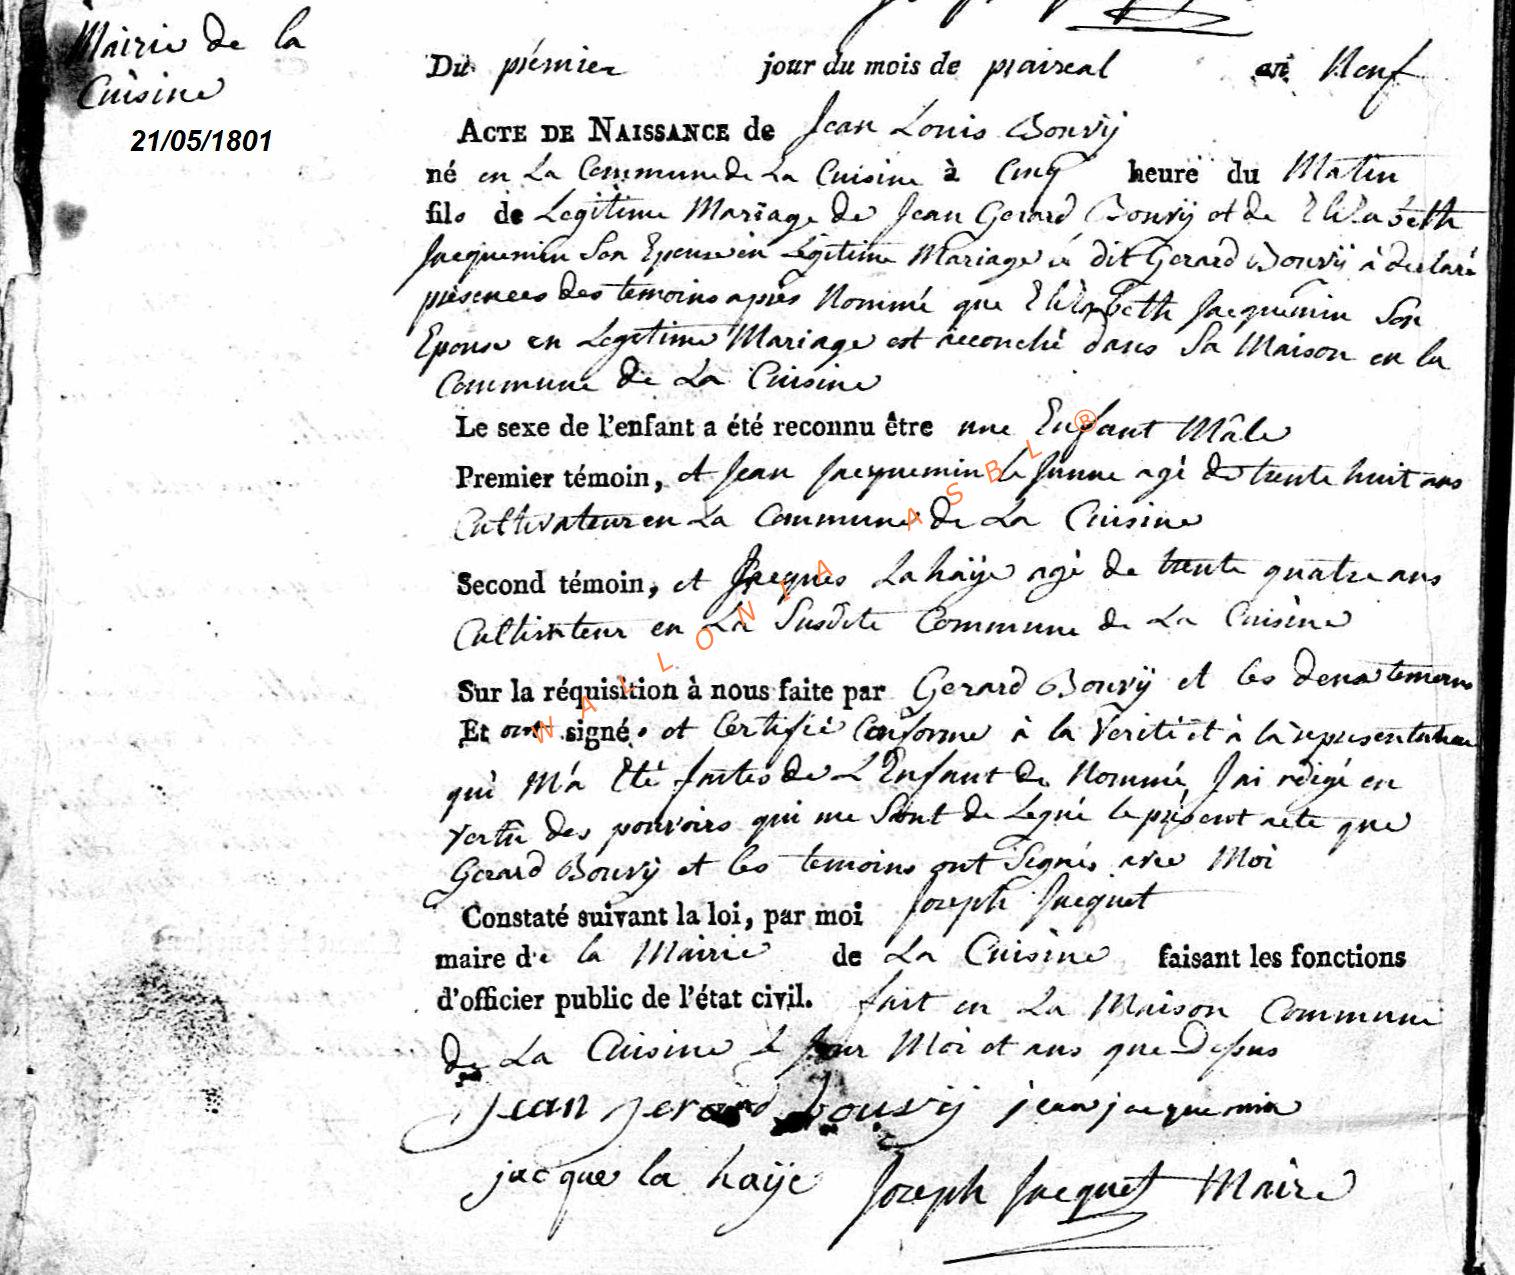 Mairie de la
Cuisine
21/05/1801
Du premier jour du mois de praireal an Neuf
ACTE DE NAISSANCE de Jean Louis Bouvÿ
né en La Commune de La Cuisine à Cinq heure du Matin
fils de Legitime Mariage de Jean Gerard Bouvÿ et de Elizabeth
Jacquemin Son Epouse en Légitime Mariage le dit Gerard Bouvÿ à declaré
présences des temoins après Nommé que Elizabeth Jacquemin Son
Epouse en Legitime Mariage est accouché dans Sa Maison en la
Commune de La Cuisine
Le sexe de l'enfant a été reconnu être une Enfant Mâle
Premier témoin, et Jean Jacquemin le Junne agé de trente huit ans
Cultivateur en La Commune de La Cuisine
Second témoin, et Jacques Lahaÿe agé de trente quatre ans
Cultivateur en La Susdite Commune de La Cuisine
Sur la réquisition à nous faite par Gerard Bouvÿ et les deux temoins
Et ont signé. et Certifié Conforme à la Verité et à la représentation
qui M'a Eté faites de L'Enfant de Nommé, J'ai rédigé en
vertu des pouvoirs qui me Sont de Legué le présent acte que
Gerard Bouvÿ et les temoins ont Signés avec Moi
Constaté suivant la loi, par moi Joseph Jacquet
maire de la Mairie de La Cuisine faisant les fonctions
d'officier public de l'état civil. fait en La Maison Commune
de La Cuisine le Jour Moi et ans que Dessus
jean gerard bouvÿ jean jacquemin
jacque la haÿe Joseph Jacquet Maire
WALLONIA ASBL ®